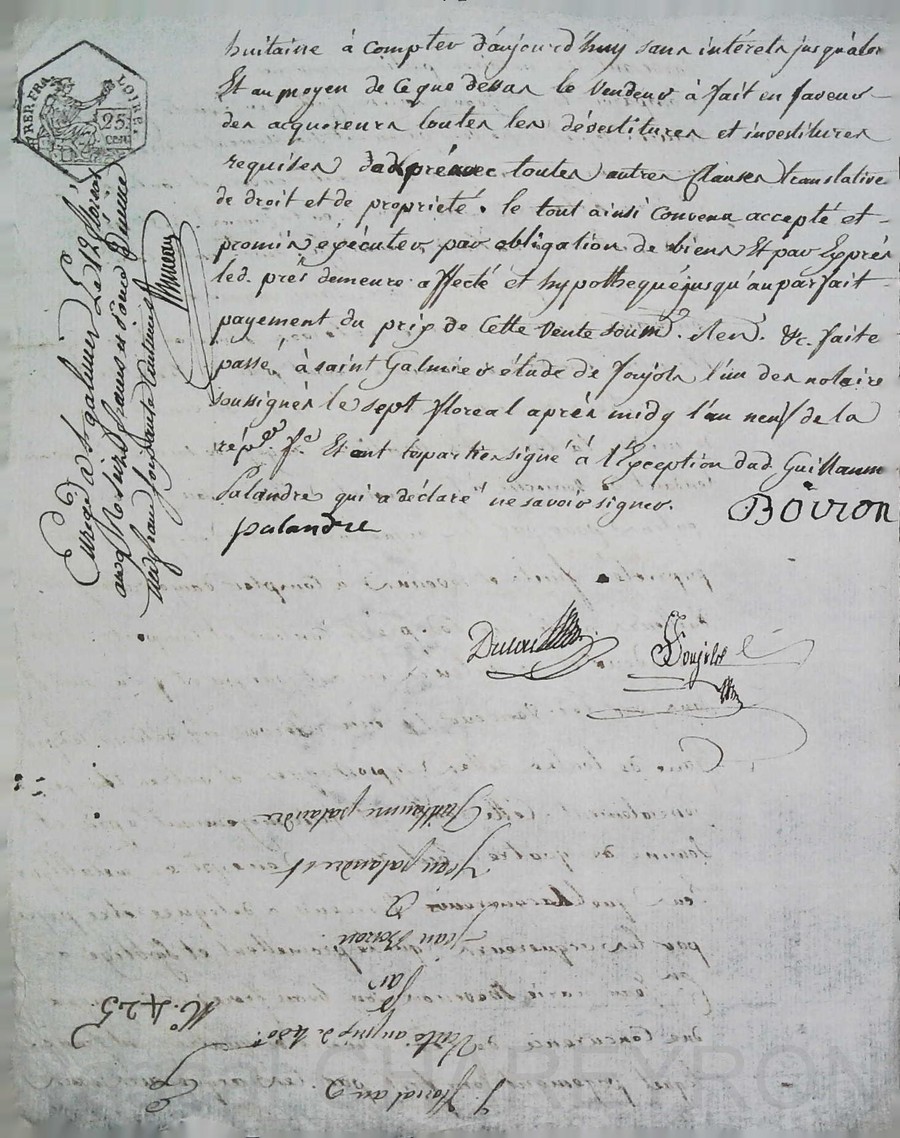 huitaine à compter d'aujourd'huy sans intérêts jusqu'alor
Et au moyen de ce que dessus le vendeur à fait en faveur
des acquereurs toutes les dévestitures et investitures
requises avec toutes autres clauses translative
de droit et de propriété. le tout ainsi convenu accepté et
promis exécuter par obligation de biens Et par Exprés
led. prés demeure affecté et hypothequé jusqu'au parfait
payement du prix de cette vente soum. &c. faite
passé, à saint Galmier étude de Foujols l'un des notaire
soussignés le sept floreal après midy l'an neuf de la
rép. f. Et ont les parties signé à l'Exception dud Guillaume
Palandre qui a déclaré ne savoir signer.
palandre
BOiRON
Foujols
RER FRA
LOIRE
25
cent
Enregé à St galmier Le 12 floreal
an 9 Reçu francs
un franc soixante centimes
Guillaume palandre
Jean palandre et
a
Jean Boiron
Par
Vente au prix de 480
N.° 425
7. floreal an 9
CHAREYRON